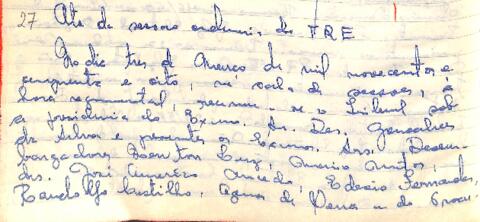 27 Ata da sessão ordinária do TRE
No dia tres de Março de mil novecentos e
cinquenta e oito, na sala de sessões, à
hora regimental, reuniu-se o Tribunal sob
a presidência do Exmo. Sr. Des. Gonçalves
da Silva e presentes os Exmos. Srs. Desem-
bargadores Newton Luz, Mario Matos,
drs. José Americo Macedo, Edesio Fernandes,
Randolfo Castilho, Agnus de Vena e do Procu-